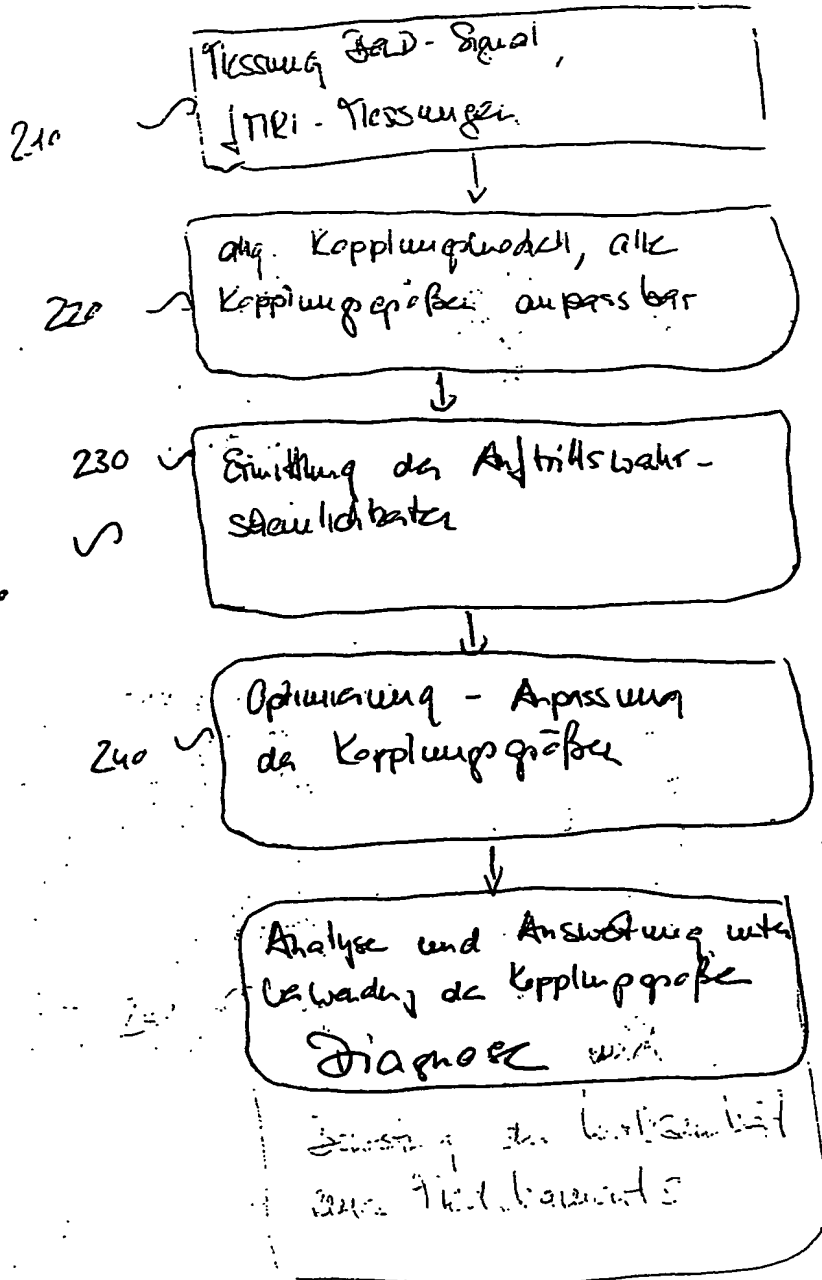 Messung BOLD-Signal,
210
fMRi-Messungen
allg. Kopplungsmodell, alle
220
Kopplungsgrößen anpassbar
230
Ermittlung der Auftrittswahr-
scheinlichkeiten
Optimierung - Anpassung
240
der Kopplungsgrößen
Analyse und Auswertung unter
Verwendung der Kopplungsgrößen
Diagnose